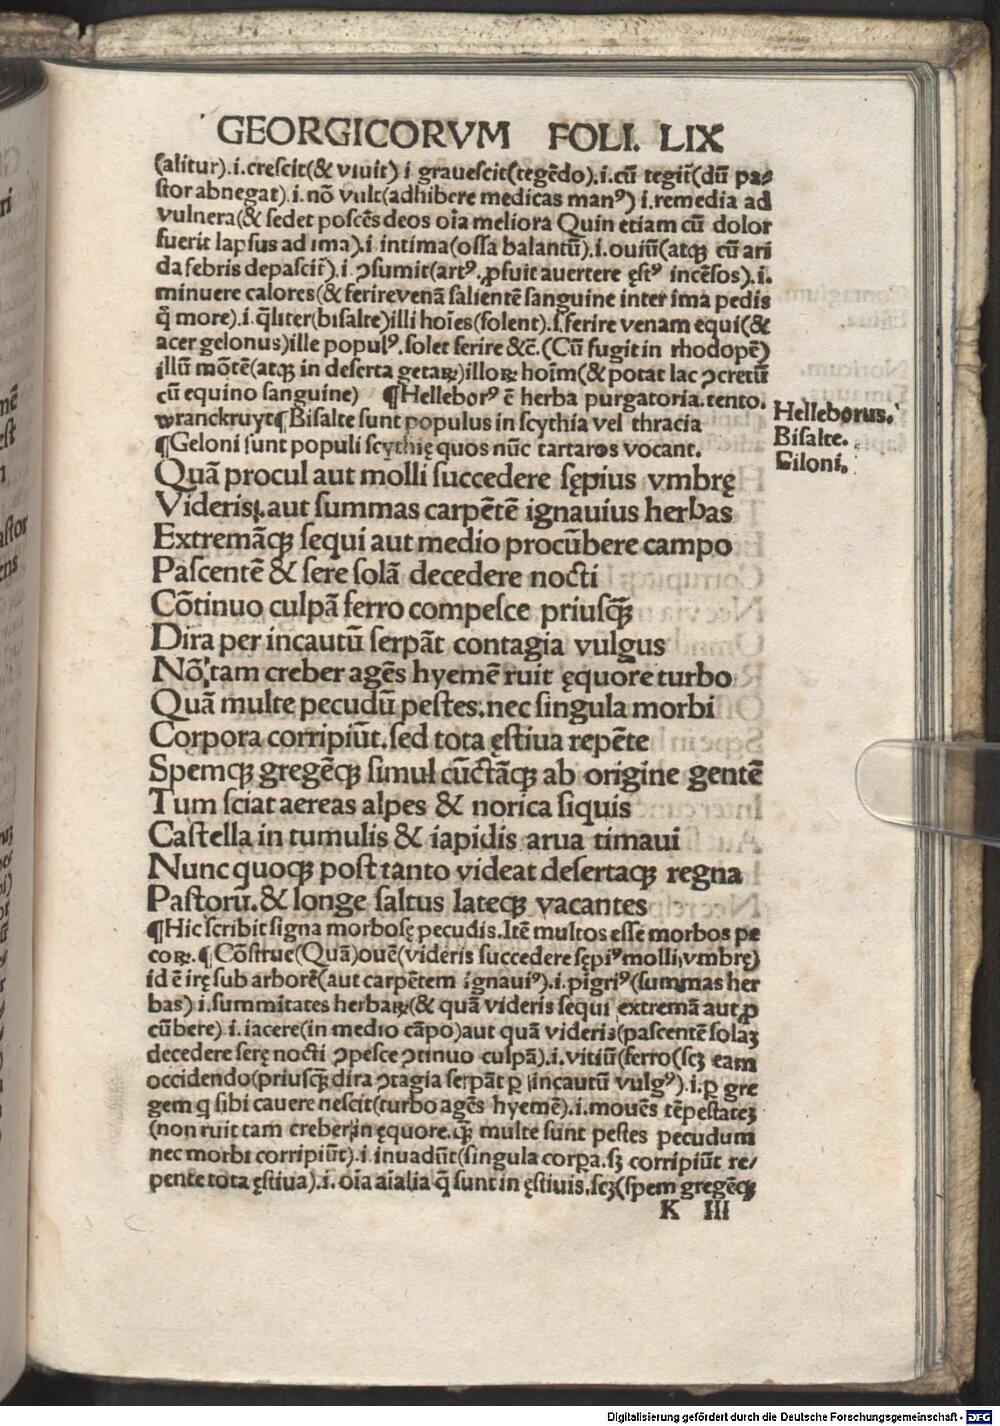 GEORGICORVM FOLI. LIX
(alitur).i.crescit(& viuit) i grauescit(tegēdo).i.cū tegit̄(dū pa⸗
stor abnegat).i.nō vult(adhibere medicas manꝰ) i.remedia ad
vulnera(& sedet poscēs deos oīa meliora Quin etiam cū dolor
fuerit lapsus ad ima).i intima(ossa balantū).i.ouiū(atqꝫ cū ari
da febris depascit̄).i ꝯsumit(artꝰ.ꝓfuit auertere ęstꝰ incēsos).i.
minuere calores(& ferirevenā salientē sanguine inter ima pedis
q̄ more).i.q̄liter(bisalte)illi hoīes(solent).s.ferire venam equi(&
acer gelonus)ille populꝰ.solet ferire &c̄.(Cū fugit in rhodopē)
illū mōtē(atqꝫ in deserta getaꝝ)illoꝝ hoīm(& potat lac ꝯcretū
cū equino sanguine) ¶Helleborꝰ ē herba purgatoria.tento.
wranckruyt¶Bisalte sunt populus in scythia vel thracia
¶Geloni sunt populi scythię quos nūc tartaros vocant.
Helleborus.
Bisalte.
Giloni.
Quā procul aut molli succedere sępius vmbrę
Videris.aut summas carpētē ignauius herbas
Extremāqꝫ sequi aut medio procūbere campo
Pascentē & sere solā decedere nocti
Cōtinuo culpā ferro compesce priusq̄ꝫ
Dira per incautū serpāt contagia vulgus
Nō tam creber agēs hyemē ruit ęquore turbo
Quā multe pecudū pestes.nec singula morbi
Corpora corripiūt.sed tota ęstiua repēte
Spemqꝫ gregēqꝫ simul cūctāqꝫ ab origine gentē
Tum sciat aereas alpes & norica siquis
Castella in tumulis & iapidis arua timaui
Nunc quoqꝫ post tanto videat desertaqꝫ regna
Pastorū.& longe saltus lateqꝫ vacantes
¶Hic scribit signa morbosę pecudis.Itē multos esse morbos pe
coꝝ.¶Cōstrue(Quā)ouē(videris succedere sępiꝰ molli vmbrę)
id ē irę sub arborē(aut carpētem ignauiꝰ).i.pigriꝰ(summas her
bas).i.summitates herbaꝝ(& quā videris sequi extremā aut ꝓ
cūbere).i.iacere(in medio cāpo)aut quā videris(pascentē solaꝫ
decedere serę nocti ꝯpesce ꝯtinuo culpā).i.vitiū(ferro(scꝫ eam
occidendo(priusq̄ꝫ dira ꝯtagia serpāt ꝑ incautū vulgꝰ).i.ꝑ gre
gem q sibi cauere nescit(turbo agēs hyemē).i.mouēs tēpestateꝫ
(non ruit tam creber in ęquore.q̄ꝫ multe sunt pestes pecudum
nec morbi corripiūt).i.inuadūt(singula corꝑa.sꝫ corripiūt re⸗
pente tota ęstiua).i.oīa aīalia q̄ sunt in ęstiuis.scꝫ(spem gregēqꝫ
K III
Digitalisierung gefördert durch die Deutsche Forschungsgemeinschaft - DFG